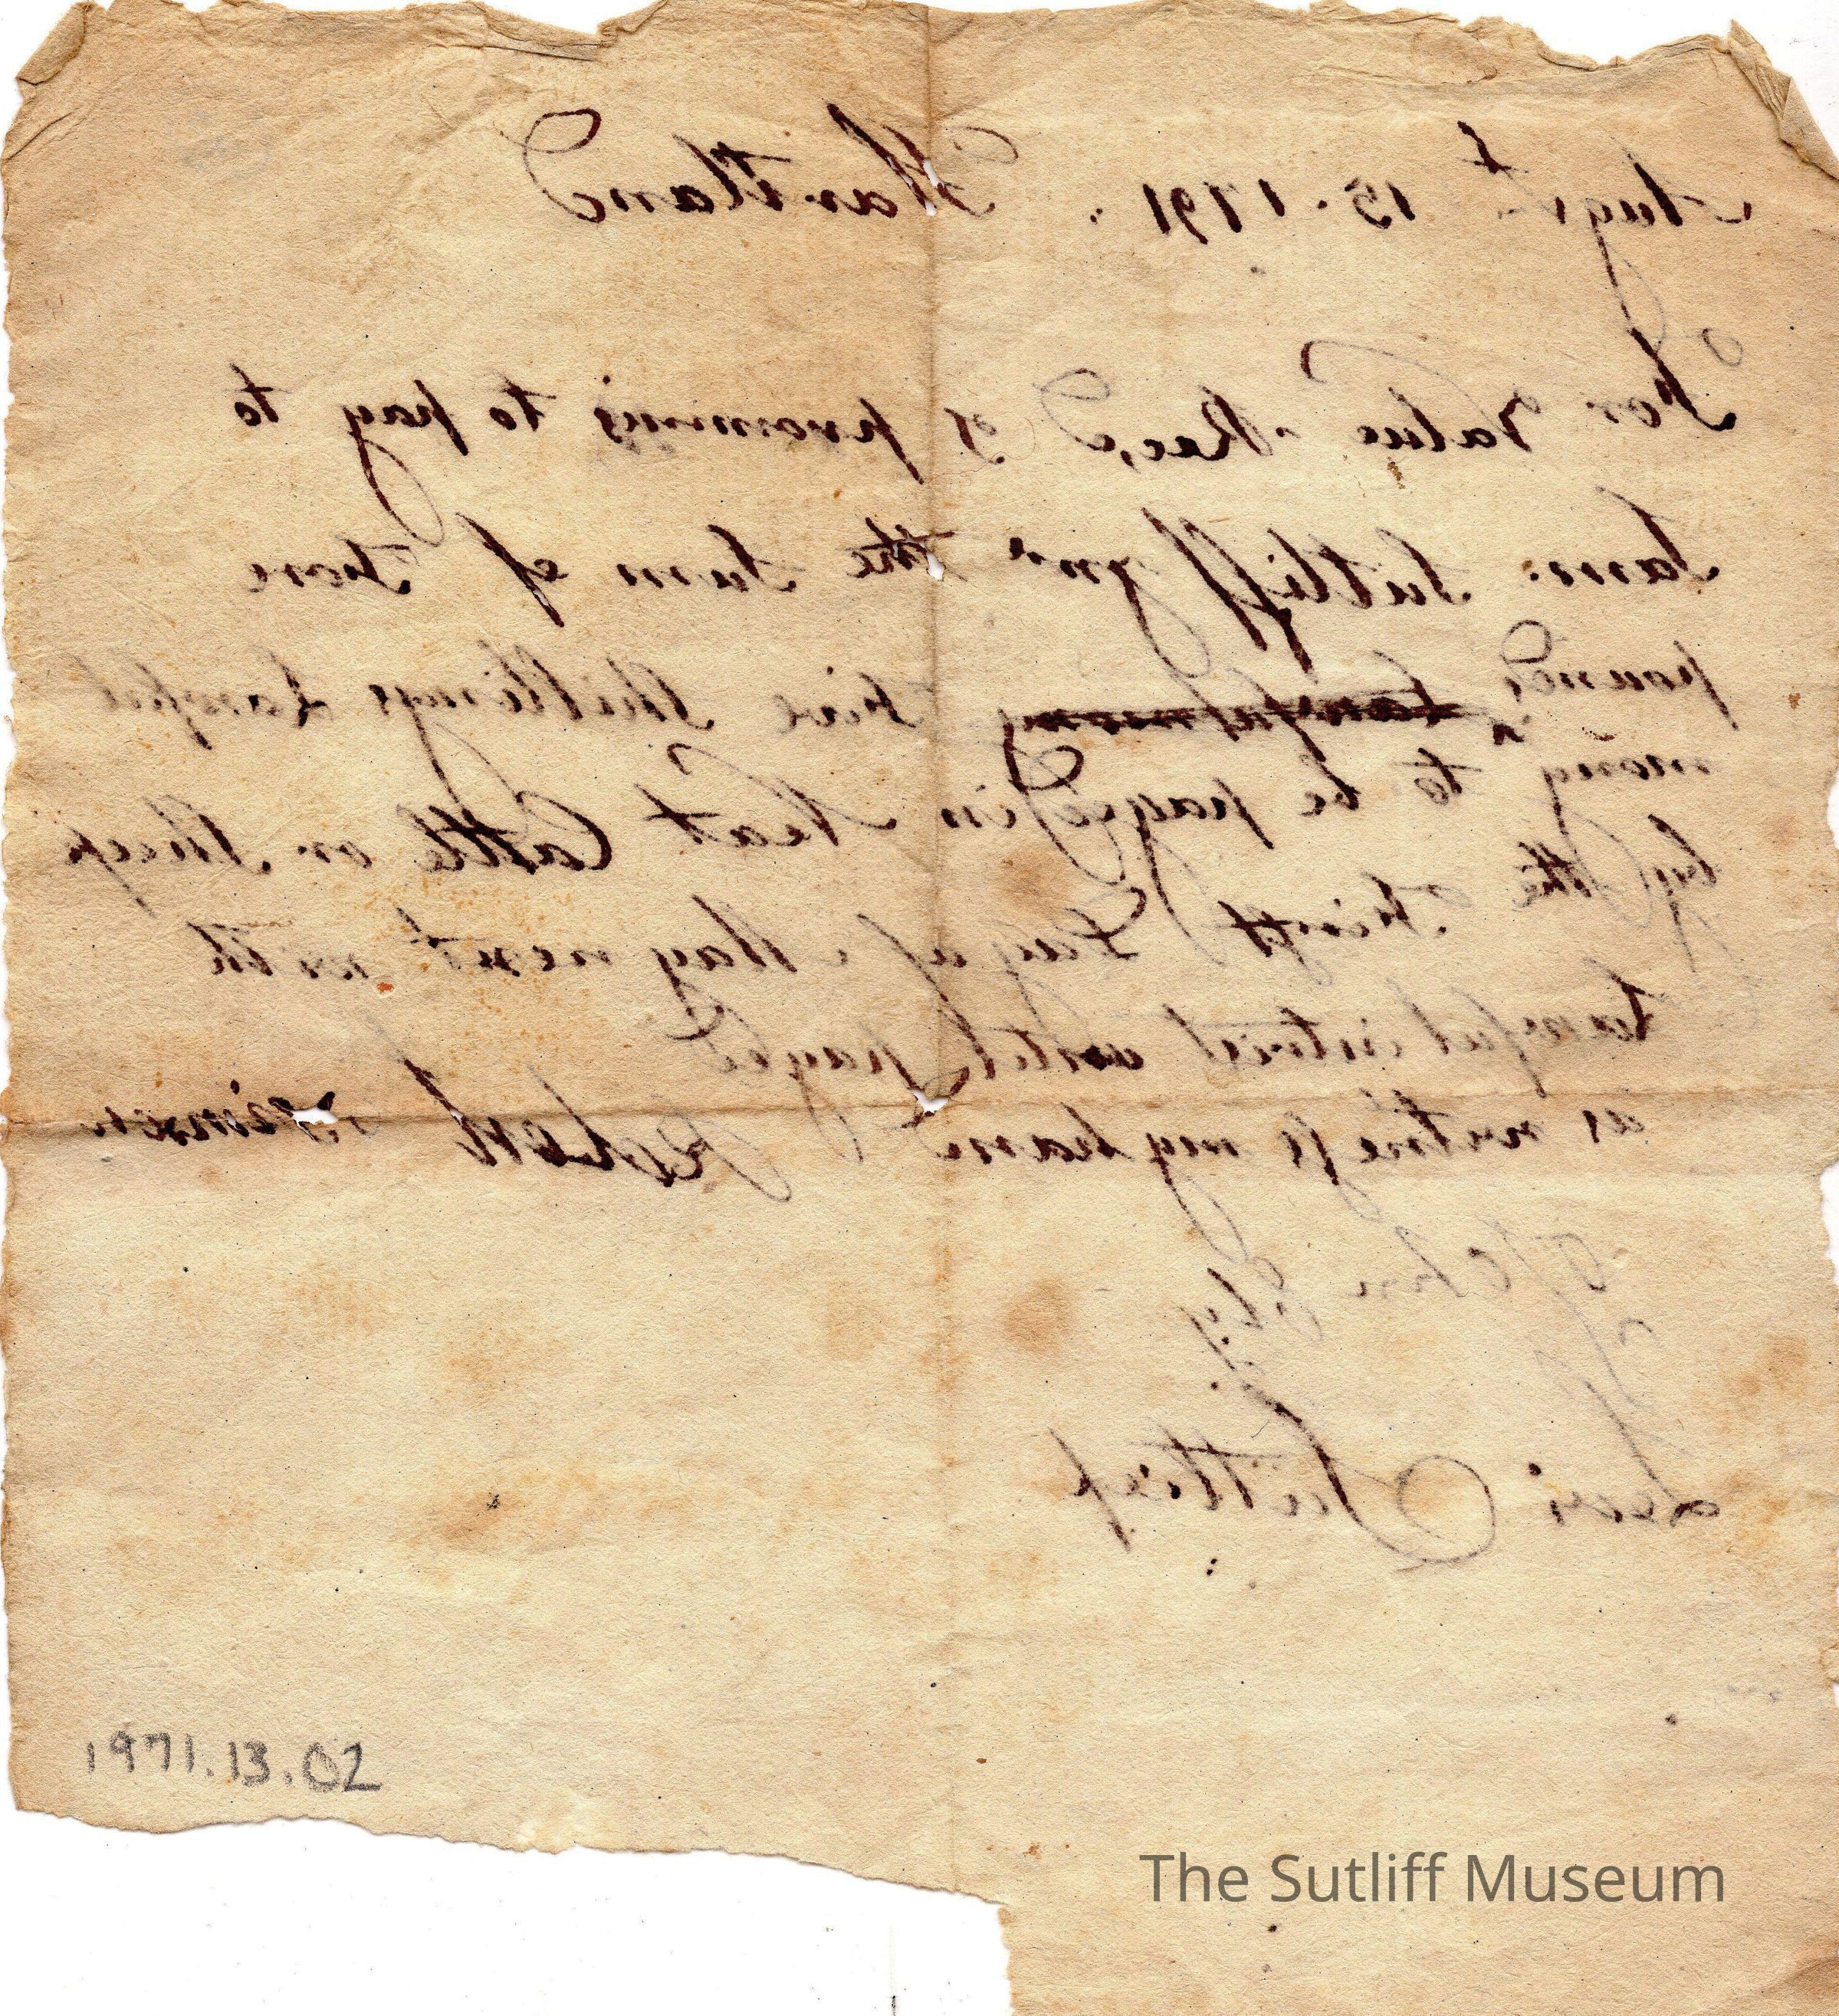 Augst 15. 1791. Hartland
For Value Recd I promis to pay to
Saml. Sutliff Jnr the Sum of
pound, Lawful mony five Shillings Lawful
mony to be payed in Neat Cattle or Sheep
by the first Day of May next with
Lawful intrest untill payed
as witness my hand
John Ely
Levi Sutlief
1971.13.02
The Sutliff Museum